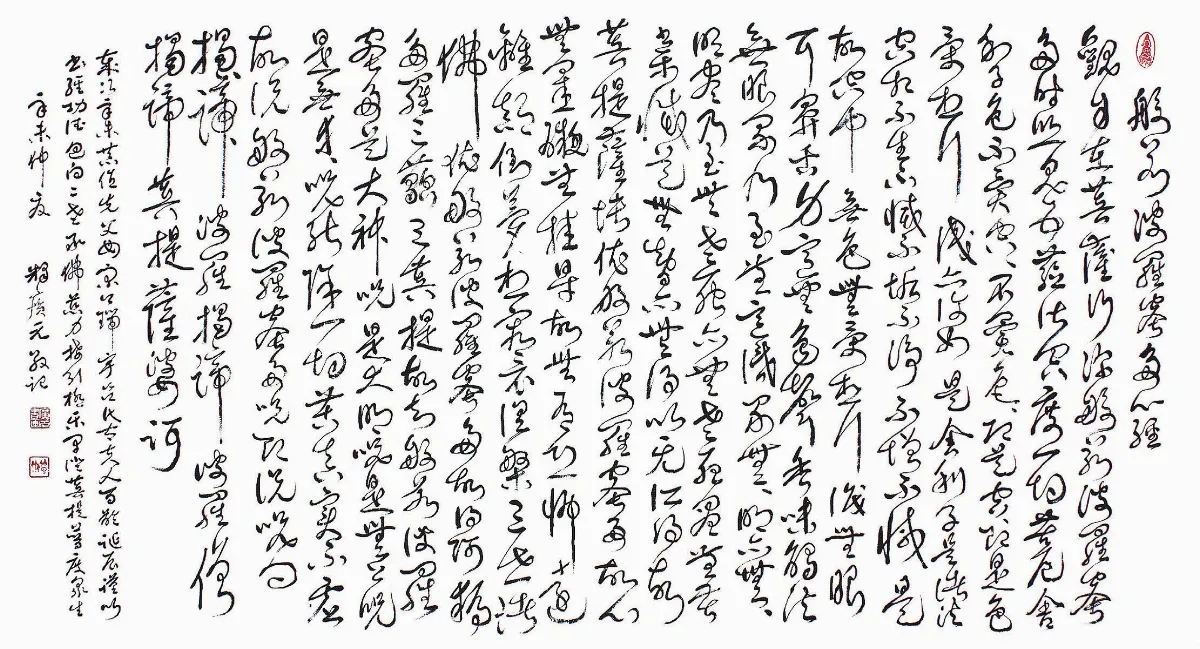 般若波羅蜜多心經
觀自在菩薩行深般若波羅蜜
多時照見五蘊皆空度一切苦厄舍
利子色不異空、不異色、即是空即是色
受想行識亦復如是舍利子是諸法
空相不生不滅不垢不淨不增不減是
故空中無色無受想行識無眼
耳鼻舌身意無色聲香味觸法
無眼界乃至無意識界無無明亦無無
明盡乃至無老死亦無老死盡無苦
集滅道無智亦無得以无所得故
菩提薩埵依般若波羅蜜多故心
無罣礙無罣礙故無有恐怖遠
離顛倒夢想究竟涅槃三世諸
佛依般若波羅蜜多故得阿耨
多羅三藐三菩提故知般若波羅
蜜多是大神咒是大明咒是無上咒
是無等等咒能除一切苦真實不虛
故說般若波羅蜜多咒即說咒曰
揭諦揭諦波羅揭諦波羅僧
揭諦菩提薩婆訶
歲次辛未恭值先父母太夫人百齡誕辰謹以
書經功德回向二老承佛慈力接引極樂早證菩提普度眾生
辛未仲夏釋廣元敬記